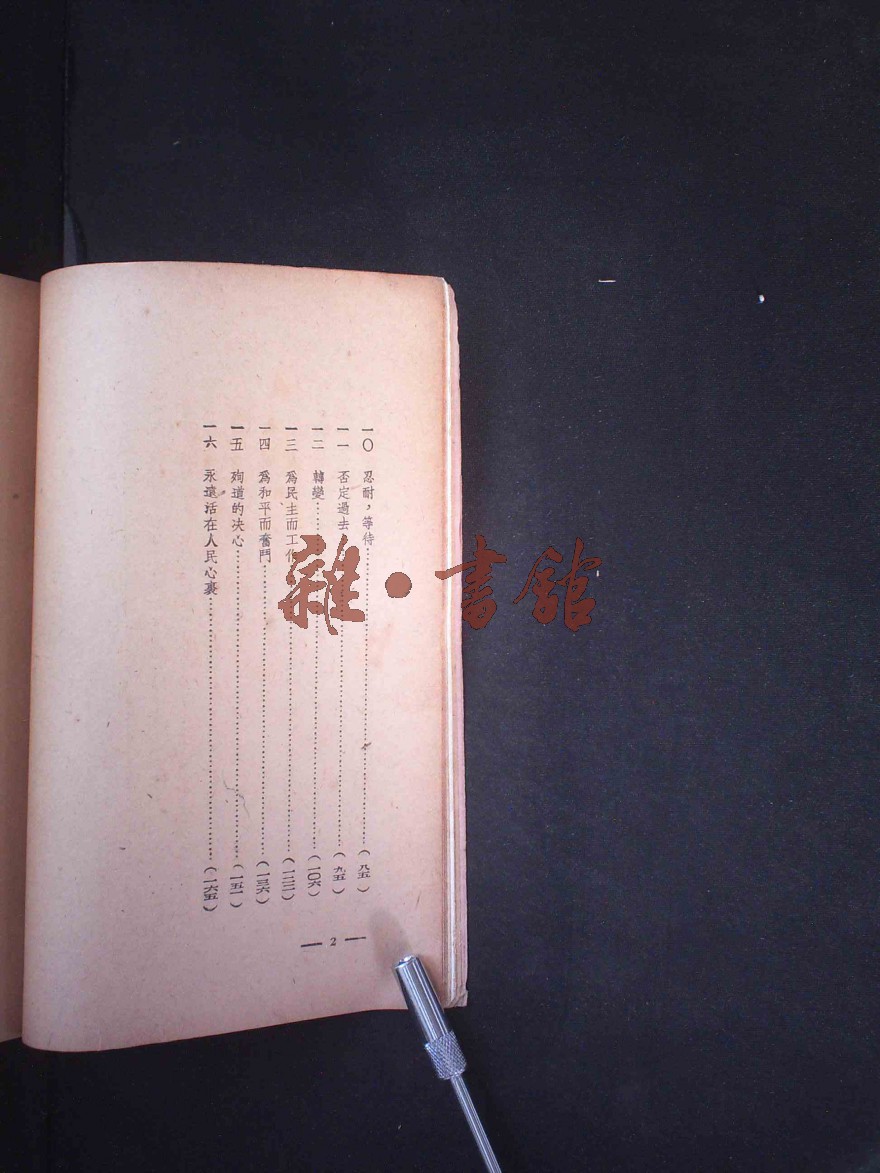 一〇 忍耐，等待……（八五）
一一 否定過去……（九五）
一二 轉變……（一〇六）
一三 爲民主而工作……（一二二）
一四 爲和平而奮鬥……（一三六）
一五 殉道的决心……（一五一）
一六 永遠活在人民心裏……（一六五）
— 2 —
雜·書館